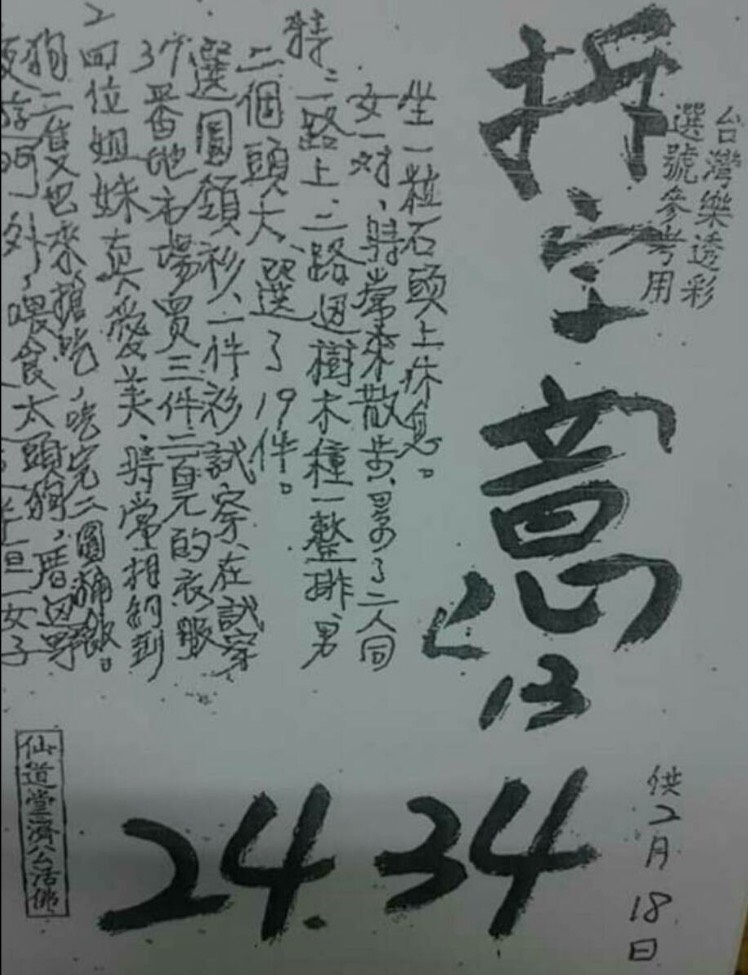 台灣樂透彩
選號參考用
拆字意
13
24.34
供2月18日
狗二隻也來搶吃,吃完二圓桶飯。
2
四位姐妹真愛美,時常相約到
37番地市場買三件二元的衣服
選圓領衫,一件衫試穿,在試穿
二個頭大,選了19件。
特:二路上,二路邊樹木種一整排,男
女一對,時常來散步,累了二人同
坐一粒石頭上休息。
仙道堂濟公活佛